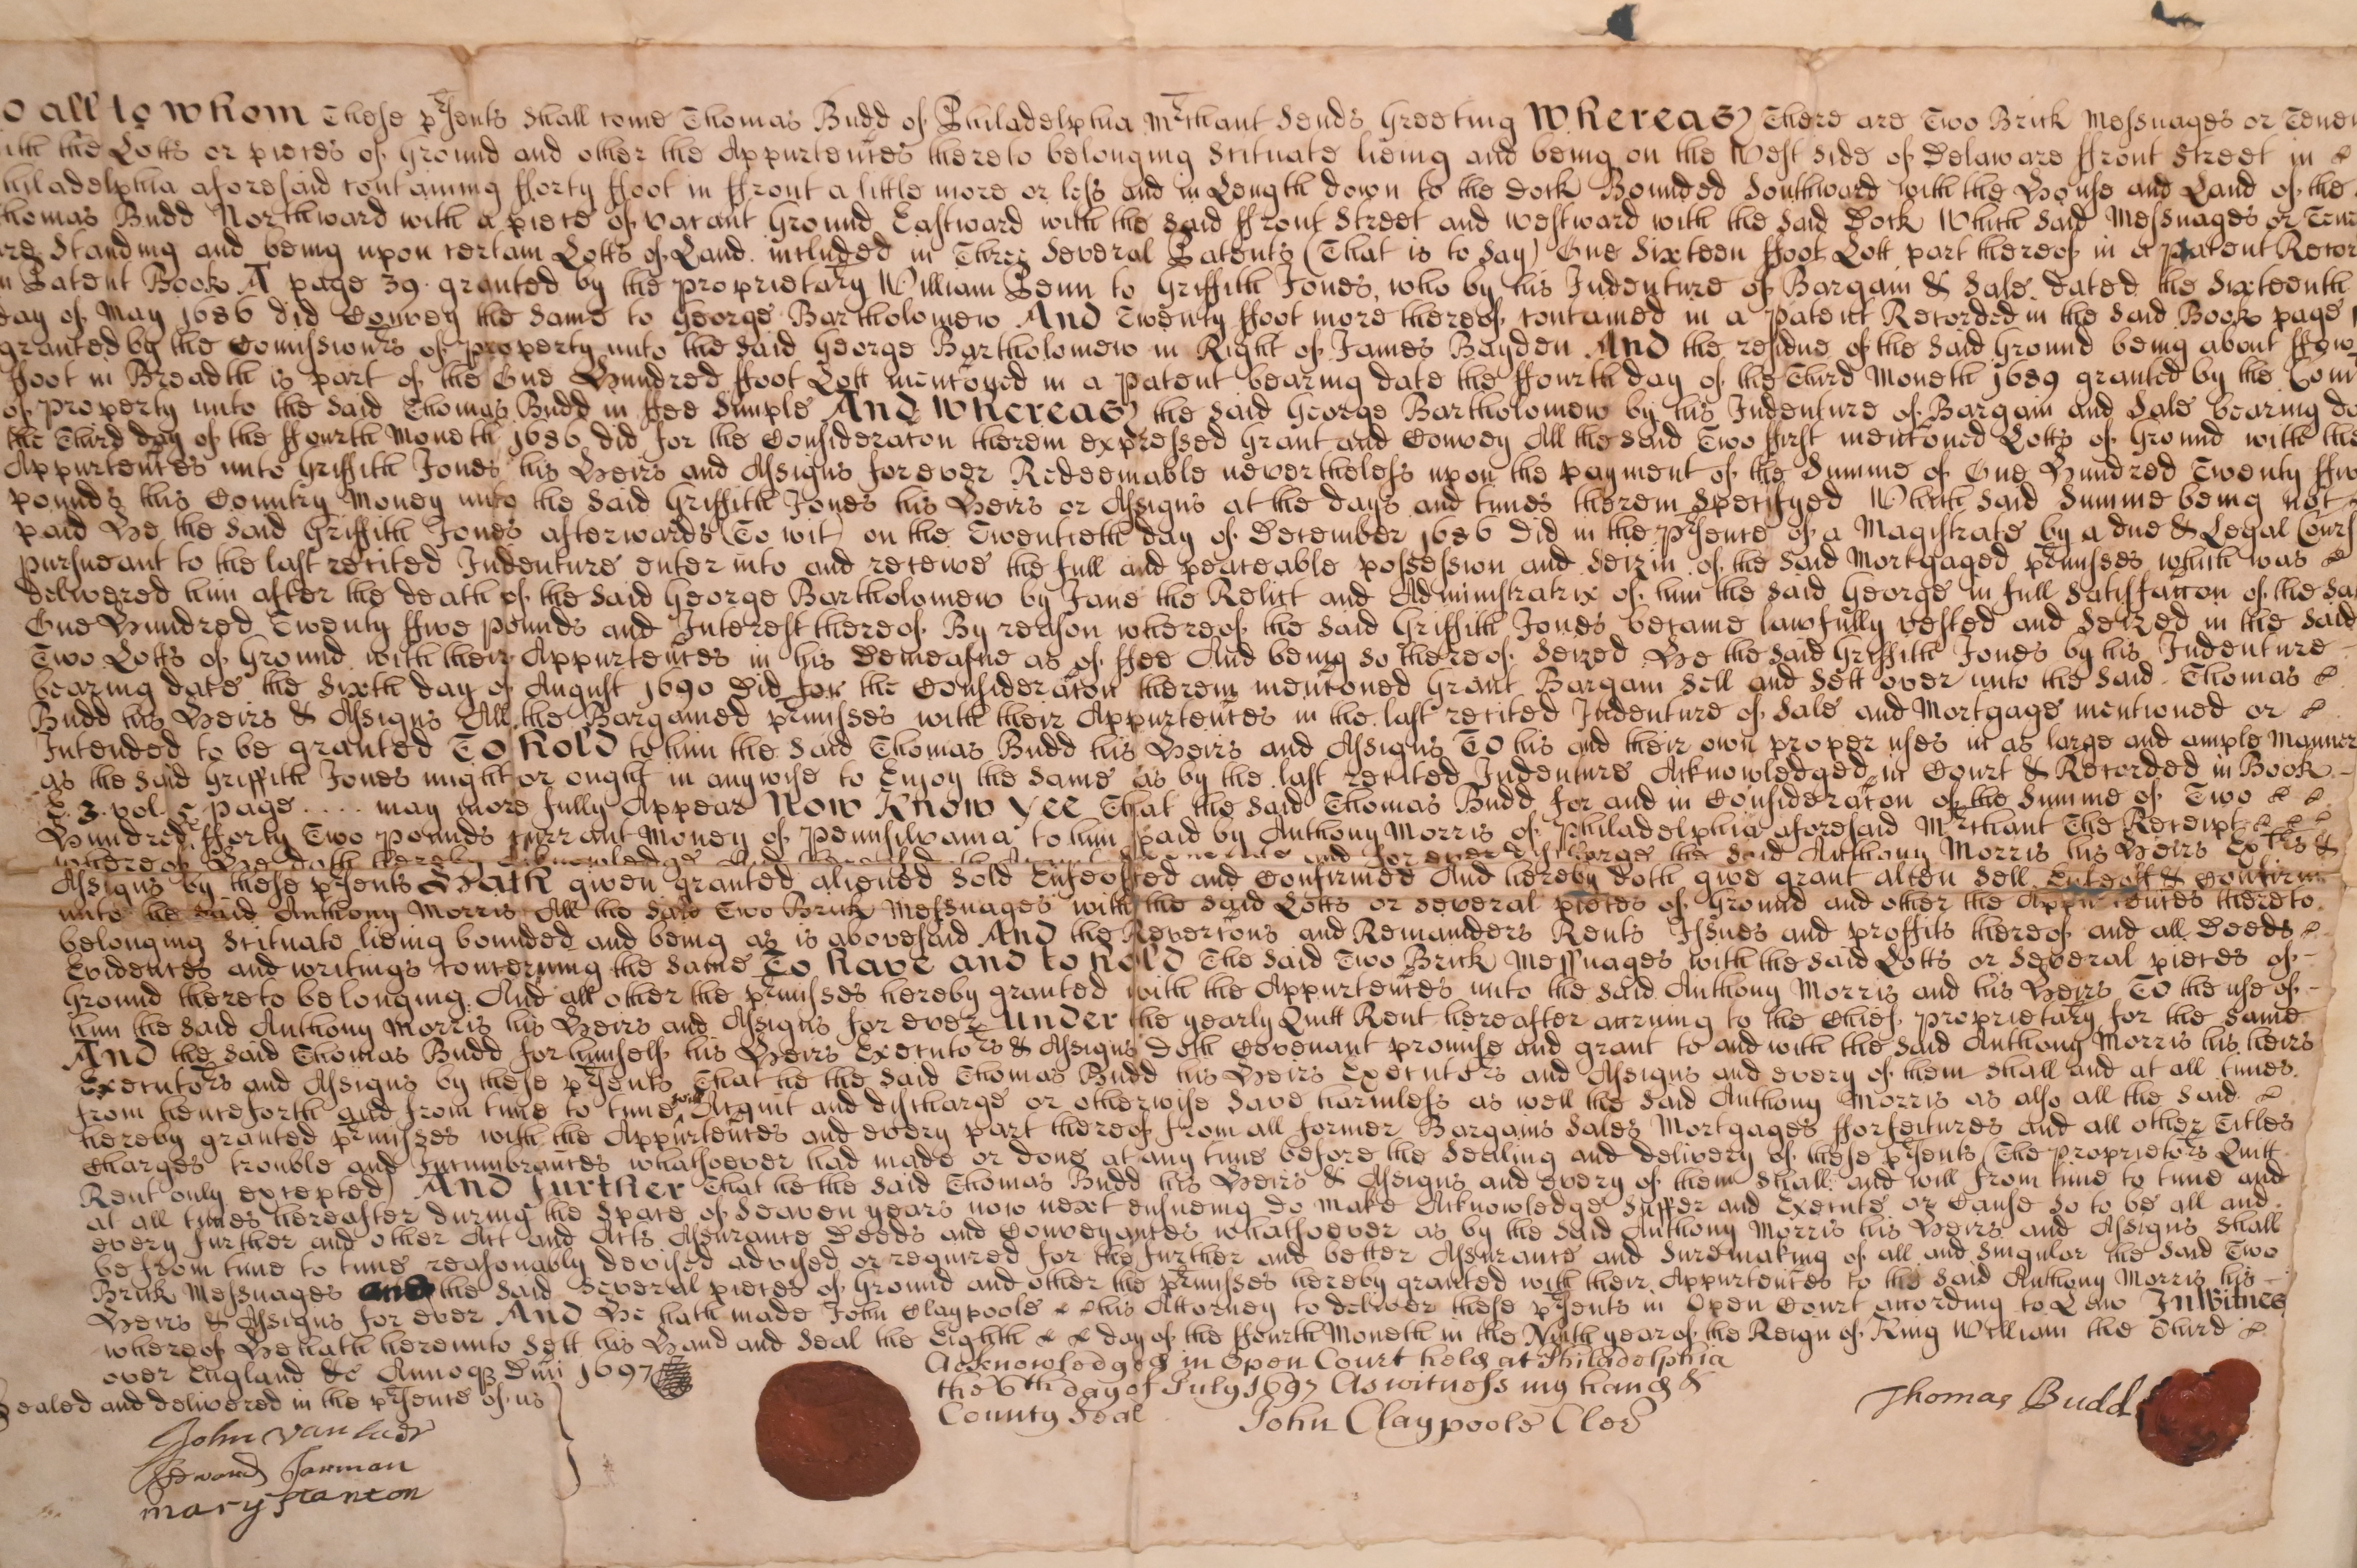 o all to whom These pʳsents shall come Thomas Budd of Philadelphia Mʳchant Sends Greeting Whereas There are Two Brick Messuages or Tene
ith the Lotts or pieces of Ground and other the Appurtenc̄es thereto belonging Scituate lieing and being on the West side of Delaware ffront Street in
hiladelphia aforesaid containing fforty ffoot in ffront a little more or less and in Length down to the Dock Bounded Southward with the House and Land of the
homas Budd Northward with a piece of vacant Ground Eastward with the said ffront Street and westward with the said Dock Which said Messuages or Ten
re Standing and being upon certain Lotts of Land included in Three Several Patents (That is to say) One Sixteen ffoot Lott part thereof in a patent Recor
n Patent Book A page 39 granted by the proprietary William Penn to Griffith Jones, who by his Indenture of Bargain & Sale dated the Sixteenth
day of May 1686 did Convey the same to George Bartholomew And Twenty ffoot more thereof contained in a patent Recorded in the said Book page
granted by the Comissionʳs of property unto the said George Bartholomew in Right of James Bayden And the residue of the said Ground being about ffow
ffoot in Breadth is part of the One Hundred ffoot Lott menc̄oned in a patent bearing date the ffourth day of the Third Moneth 1689 granted by the Com
of property unto the said Thomas Budd in ffee Simple And Whereas the said George Bartholomew by his Indenture of Bargain and Sale bearing da
the Third day of the ffourth Moneth 1686 did for the Considerac̄on therein expressed Grant and Convey All the said Two ffirst menc̄oned Lotts of Ground with the
Appurtenc̄es unto Griffith Jones his Heirs and Assigns forever Redeemable nevertheless upon the payment of the Summe of One Hundred Twenty ffiv
pounds this Country Money unto the said Griffith Jones his Heirs or Assigns at the days and times therein specifyed Which said Summe being not
paid He the said Griffith Jones afterwards (To wit) on the Twentieth day of December 1686 Did in the pʳsence of a Magistrate by a due & Legal Cours
pursueant to the last recited Indenture enter into and receive the full and peaceable possession and seizin of the said Mortgaged pʳmisses which was
delivered him after the death of the said George Bartholomew by Jane the Relict and Administratrix of him the said George in full Satisfacc̄on of the sai
One Hundred Twenty ffive pounds and Interest thereof By reason whereof the said Griffith Jones became lawfully vested and seized in the said
Two Lotts of Ground with their Appurtenc̄es in his Demeasne as of ffee And being so thereof seized He the said Griffith Jones by his Indenture
bearing date the Sixth day of August 1690 Did for the Considerac̄on therein menc̄oned Grant Bargain Sell and Sett over unto the said Thomas
Budd his Heirs & Assigns All the Bargained pʳmisses with their Appurtenc̄es in the last recited Indenture of Sale and Mortgage mentioned or
Intended to be granted To hold to him the said Thomas Budd his Heirs and Assigns To his and their own proper uses in as large and ample Manner
as the said Griffith Jones might or ought in anywise to Enjoy the same as by the last recited Indenture Acknowledged in Court & Recorded in Book
E. 3. vol. 5 page .... may more fully Appear Now Know Yee That the said Thomas Budd for and in Considerac̄on of the Summe of Two
Hundred fforty Two pounds currant Money of Pennsilvania to him paid by Anthony Morris of Philadelphia aforesaid Mʳchant The Receipt
whereof He doth hereby Acknowledge and for ever discharge the said Anthony Morris his Heirs Exʳs &
Assigns by these pʳsents Hath given granted aliened sold Enfeoffed and Confirmed And hereby doth give grant alien sell Enfeoff & Confirm
unto the said Anthony Morris All the said Two Brick Messuages with the said Lotts or several pieces of Ground and other the Appurtenc̄es thereto
belonging Scituate lieing bounded and being as is abovesaid And the Reverc̄ons and Remainders Rents Issues and proffits thereof and all Deeds
Evidences and writings concerning the same To have and to hold The said Two Brick Messuages with the said Lotts or several pieces of
Ground thereto belonging And all other the pʳmisses hereby granted with the Appurtenc̄es unto the said Anthony Morris and his Heirs To the use of
him the said Anthony Morris his Heirs and Assigns for ever Under the yearly Quitt Rent hereafter accruing to the Chief proprietary for the same
And the said Thomas Budd for himself his Heirs Executoʳs & Assigns doth Covenant promise and grant to and with the said Anthony Morris his heirs
Executoʳs and Assigns by these pʳsents That he the said Thomas Budd his Heirs Executoʳs and Assigns and every of them shall and at all times
from henceforth and from time to time will Acquit and discharge or otherwise save harmless as well the said Anthony Morris as also all the said
hereby granted pʳmisses with the Appurtenc̄es and every part thereof from all former Bargains Sales Mortgages fforfeitures and all other Titles
Charges trouble and Incumbrances whatsoever had made or done at any time before the Sealing and delivery of these pʳsents (The proprietoʳs Quitt
Rent only excepted) And further That he the said Thomas Budd his Heirs & Assigns and every of them shall and will from time to time and
at all times hereafter during the space of Seaven years now next ensueing do make Acknowledge suffer and Execute or Cause so to be all and
every further and other Act and Acts Assurance Deeds and Conveyances whatsoever as by the said Anthony Morris his Heirs and Assigns shall
be from time to time reasonably devised advised or required for the further and better Assurance and suremaking of all and singular the said Two
Brick Messuages and the said Several pieces of Ground and other the pʳmisses hereby granted with their Appurtenc̄es to the said Anthony Morris his
Heirs & Assigns for ever And He hath made John Claypoole his Attorney to deliver these pʳsents in Open Court according to Law In Witnes
whereof He hath hereunto Sett his Hand and Seal the Eighth day of the ffourth Moneth in the Ninth year of the Reign of King William the Third
over England &c Annoq Dm̄i 1697
Sealed and delivered in the pʳsence of us
John van
Edward Jarman
mary stanton
Acknowledged in Open Court held at Philadelphia
the 6th day of July 1697 As witness my hand &
County Seal John Claypoole Cler
Thomas Budd